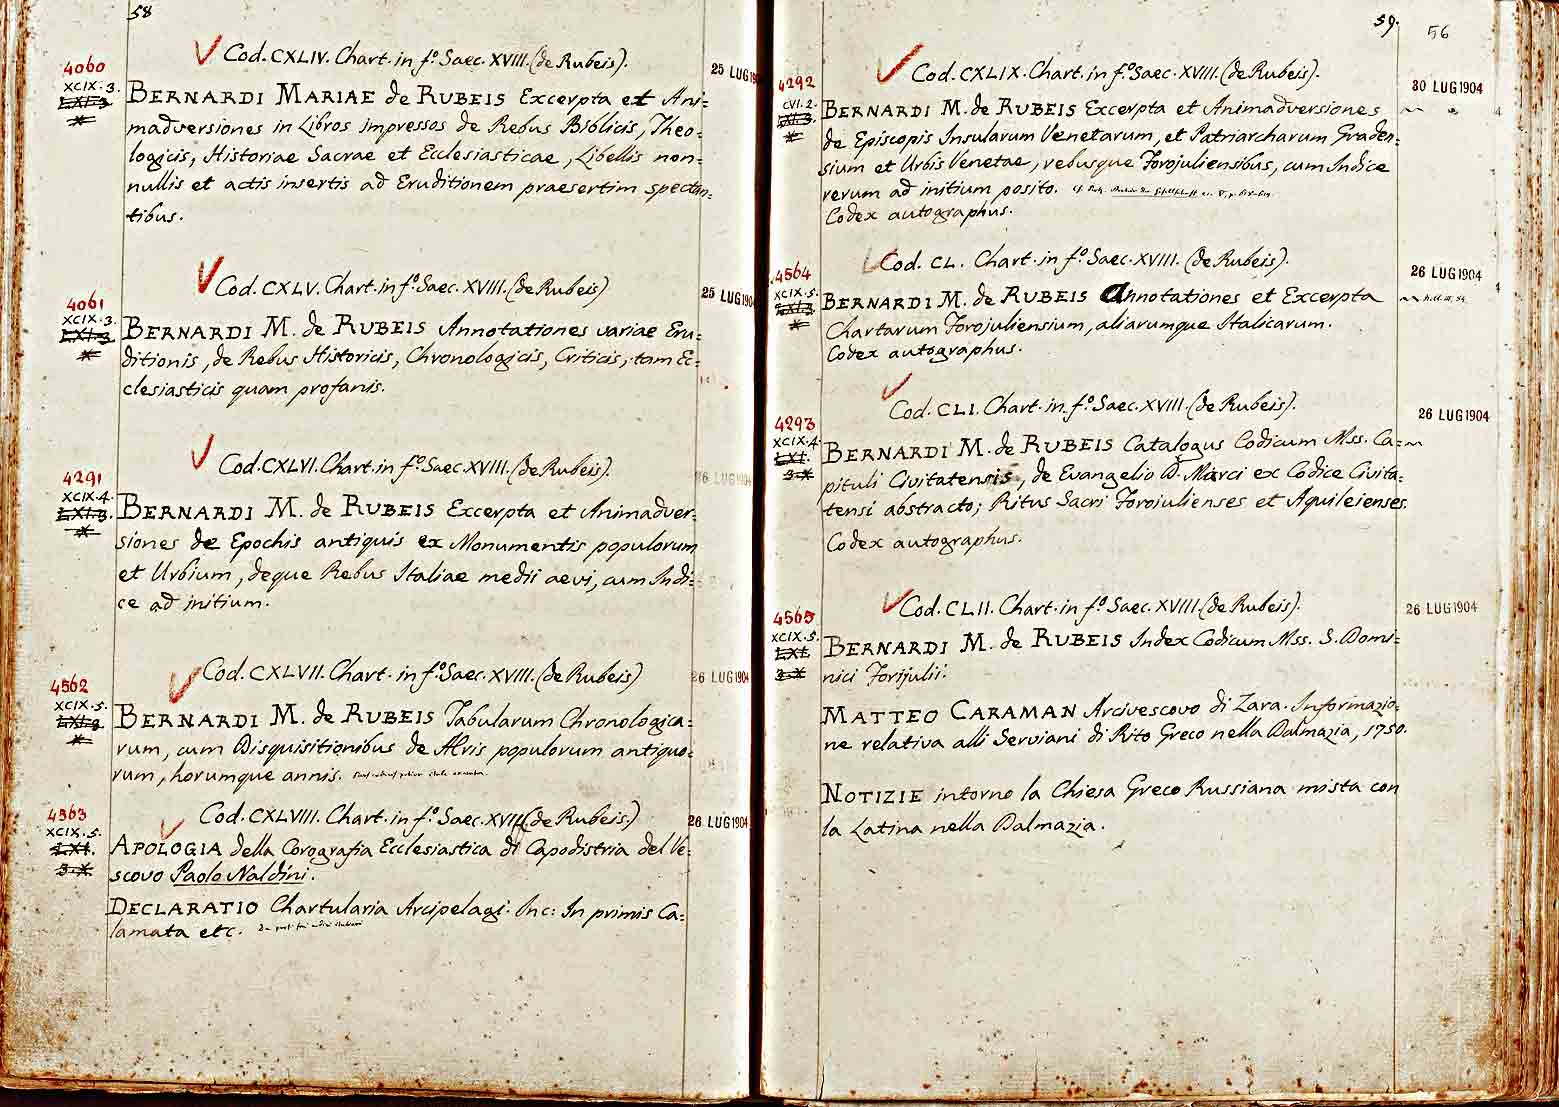 58
Cod. CXLIV. Chart. in fº. Saec. XVIII. (de Rubeis).
4060
XCIX. 3.
25 LUG 19
BERNARDI MARIAE de RUBEIS Excerpta et Ani=
madversiones in Libros impressos de Rebus Biblicis, Theo=
logicis, Historiae Sacrae et Ecclesiasticae, Libellis non=
nullis et actis insertis ad Eruditionem praesertim spectan=
tibus.
Cod. CXLV. Chart. in fº. Saec. XVIII. (de Rubeis)
4061
XCIX. 3.
25 LUG 1904
BERNARDI M. de RUBEIS Annotationes variae Eru=
ditionis, de Rebus Historicis, Chronologicis, Criticis, tam Ec=
clesiasticis quam profanis.
Cod. CXLVI. Chart. in fº. Saec. XVIII. (de Rubeis).
4291
XCIX. 4.
26 LUG 1904
BERNARDI M. de RUBEIS Excerpta et Animadver=
siones de Epochis antiquis ex Monumentis populorum
et Urbium, deque Rebus Italiae medii aevi, cum Indi=
ce ad initium.
Cod. CXLVII. Chart. in fº. Saec. XVIII. (de Rubeis)
4562
XCIX. 5.
26 LUG 1904
BERNARDI M. de RUBEIS Tabularum Chronologica=
rum, cum Disquisitionibus de Aeris populorum antiquo=
rum, horumque annis.
4563
XCIX. 5.
Cod. CXLVIII. Chart. in fº. Saec. XVIII. (de Rubeis.)
26 LUG 1904
APOLOGIA della Corografia Ecclesiastica di Capodistria del Ve=
scovo Paolo Naldini.
DECLARATIO Chartularia Arcipelagi. Inc: In primis Ca=
lamata etc.
59.
56
Cod. CXLIX. Chart. in fº. Saec. XVIII. (de Rubeis).
4292
CVI. 2.
30 LUG 1904
BERNARDI M. de RUBEIS Excerpta et Animadversiones
de Episcopis Insularum Venetarum, et Patriarcharum Graden=
sium et Urbis Venetae, rebusque Forojuliensibus, cum Indice
rerum ad initium posito.
Codex autographus.
Cod. CL. Chart. in fº. Saec. XVIII. (de Rubeis).
4564
XCIX. 5.
26 LUG 1904
BERNARDI M. de RUBEIS Annotationes et Excerpta
Chartarum Forojuliensium, aliarumque Italicarum.
Codex autographus.
Cod. CLI. Chart. in fº. Saec. XVIII. (de Rubeis).
4293
XCIX. 4.
26 LUG 1904
BERNARDI M. de RUBEIS Catalogus Codicum Mss. Ca=
pituli Civitatensis, de Evangelio D. Marci ex Codice Civita=
tensi abstracto; Ritus Sacri Forojulienses et Aquileienses.
Codex autographus.
Cod. CLII. Chart. in fº. Saec. XVIII. (de Rubeis).
4565
XCIX. 5.
26 LUG 1904
BERNARDI M. de RUBEIS Index Codicum Mss. S. Domi=
nici Forijulii.
MATTEO CARAMAN Arcivescovo di Zara. Informazio=
ne relativa alli Serviani di Rito Greco nella Dalmazia, 1750.
NOTIZIE intorno la Chiesa Greco Russiana mista con
la Latina nella Dalmazia.